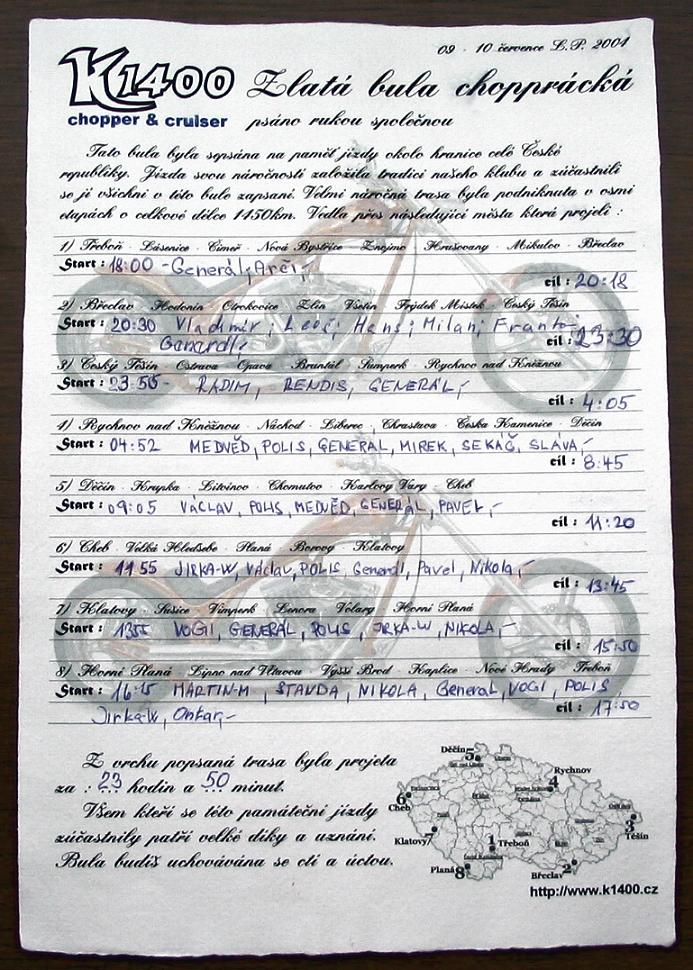 09 - 10 července L.P. 2004
K1400
chopper & cruiser
Zlatá bula chopprácká
psáno rukou společnou
Tato bula byla sepsána na paměť jízdy okolo hranice celé České
republiky. Jízda svou náročností založila tradici našeho klubu a zúčastnili
se jí všichni v této bule zapsaní. Velmi náročná trasa byla podniknuta v osmi
etapách o celkové délce 1450km. Vedla přes následující města která projeli :
1) Třeboň - Lásenice - Čimeř - Nová Bystřice - Znojmo - Hrušovany - Mikulov - Břeclav
Start : 18:00 - Generál; Arči,-
cíl : 20:18
2) Břeclav - Hodonín - Otrokovice - Zlín - Vsetín - Frýdek Místek - Český Těšín
Start : 20:30 Vladimír; Leoš; Hans; Milan; Franta-
Generál,- cíl : 23:30
3) Český Těšín - Ostrava - Opava - Bruntál - Šumperk - Rychnov nad Kněžnou
Start : 23:55 - RADIM, RENDIS, GENERÁL,-
cíl : 4:05
4) Rychnov nad Kněžnou - Náchod - Liberec - Chrastava - Česká Kamenice - Děčín
Start : 04:52 MEDVĚD, POLIS, GENERÁL, MIREK, SEKÁČ, SLÁVA,-
cíl : 8:45
5) Děčín - Krupka - Litvínov - Chomutov - Karlovy Vary - Cheb
Start : 09:05 VÁCLAV, POLIS, MEDVĚD, GENERÁL, PAVEL,-
cíl : 11:20
6) Cheb - Velká Hleďsebe - Planá - Borovy - Klatovy
Start : 11 55 JIRKA-W, Václav, POLIS Generál, Pavel, Nikola,-
cíl : 13:45
7) Klatovy - Sušice - Vimperk - Lenora - Volary - Horní Planá
Start : 1355 VOGI, GENERÁL, POLIS, JIRKA-W, NIKOLA,-
cíl : 15:50
8) Horní Planá - Lipno nad Vltavou - Vyšší Brod - Kaplice - Nové Hrady - Třeboň
Start : 16:15 MARTIN-M, STANDA, NIKOLA, General, VOGI, POLIS,
Jirka-W, cíl : 17:50
Z vrchu popsaná trasa byla projeta
za : 23 hodin a 50 minut.
Všem kteří se této památeční jízdy
zúčastnily patří velké díky a uznání.
Bula budiž uchovávána se ctí a úctou.
Děčín 5
Rychnov
4
6
Cheb
3
Těšín
Klatovy 7
1
Třeboň
Planá 8
Břeclav 2
http://www.k1400.cz